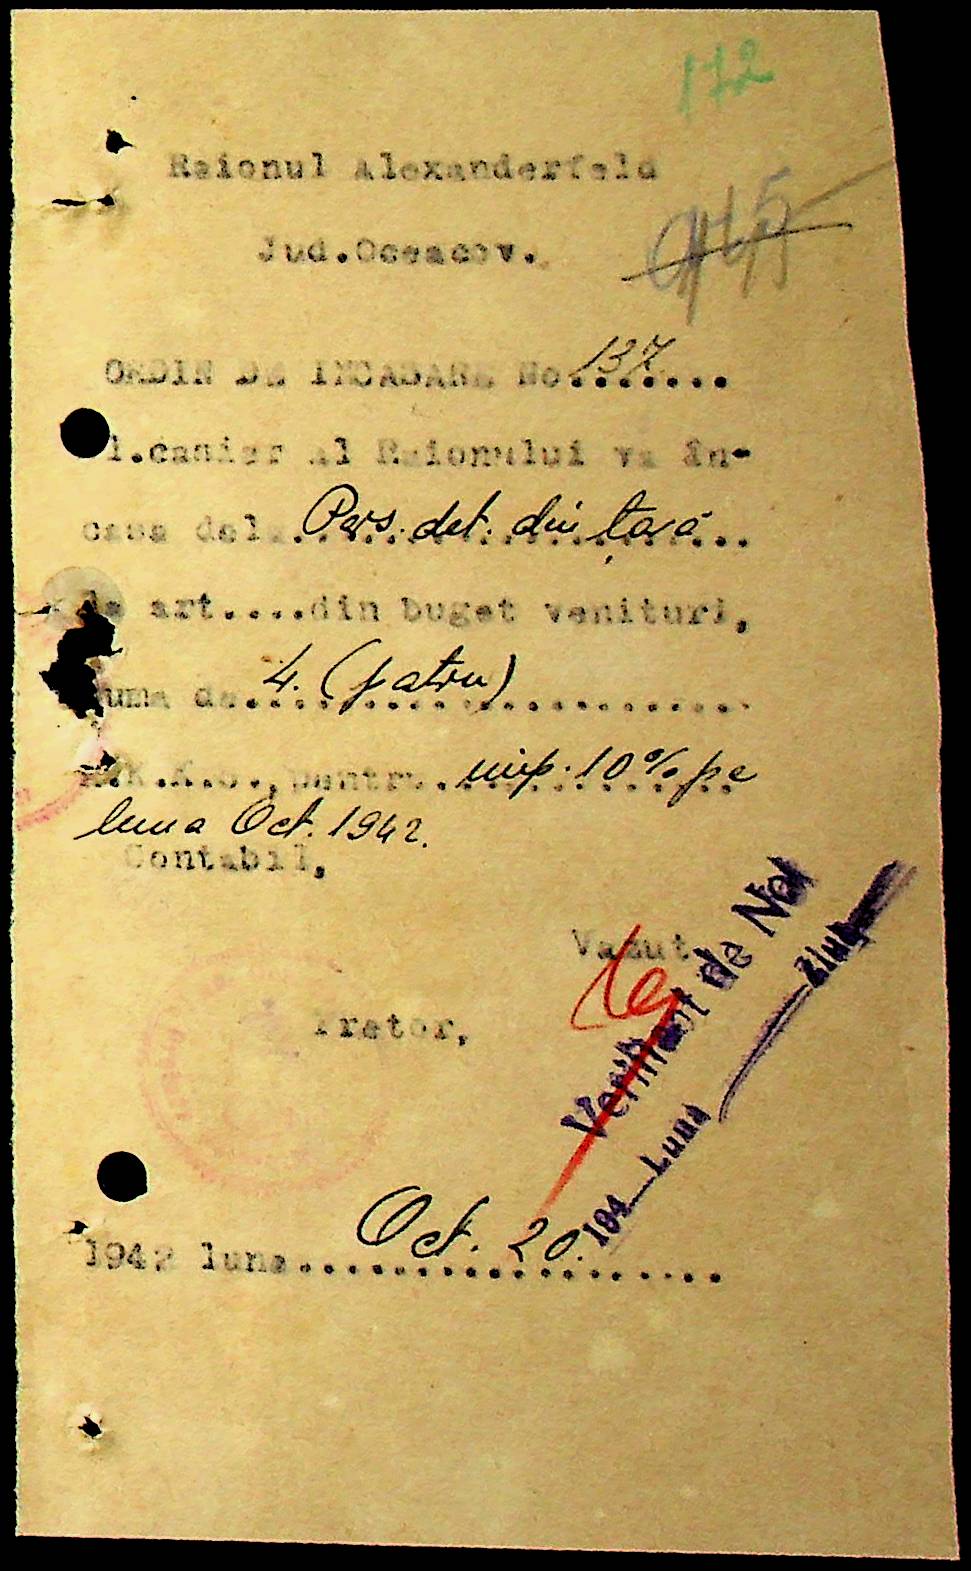 172
Raionul Alexanderfeld
Jud.Oceacov.
ORDIN DE INCASARE No.137......
l.casier al Raionului va în-
casa dela Pers. det. din țară
de art....din buget venituri,
suma de 4. (patru)
R.K.K.S., pentru imp. 10% pe
luna Oct. 1942.
Contabil,
Vazut
Pretor,
Verificat de Noi
194 Luna Ziua
1942 luna Oct. 20.